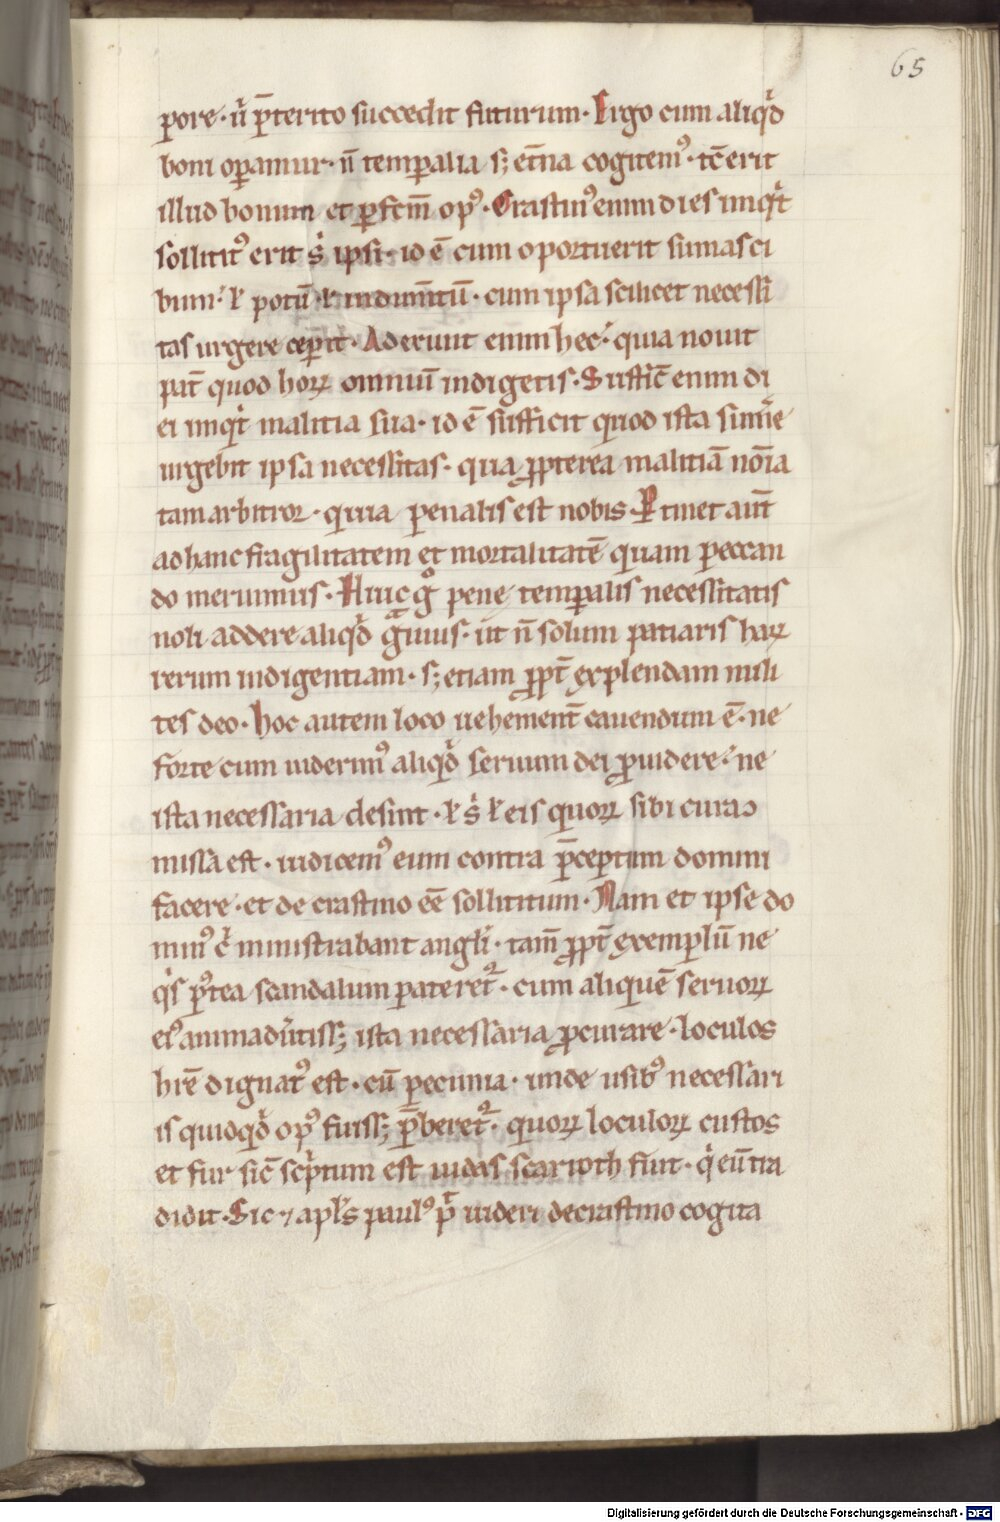 65
pore· ů p̄terito succedit futurum· Ergo cum aliqͦd
boni oꝑamur· n̄ temꝑalia sꝫ et̄na cogitemꝰ· tc̄ erit
illud bonum et ꝑfcm̄ opꝰ· Crastinꝰ enim dies inqͥt
sollicitꝰ erit sͥ ipsi· id ē cum oportuerit sumas ci
bum· ł potū ł indumtū̄· cum ipsa scilicet necessi
tas urgere ceꝑit· Aderunt enim hec· quia nouit
pat̄ quod hoꝝ omniū indigetis· Suffic̄ enim di
ei inqͥt malitia sua· id ē sufficit quod ista sumͤe
urgebit ipsa necessitas· qua ꝓpterea malitiā noīa
tam arbitror· quia penalis est nobis· Ꝑtinet aut̄
ad hanc fragilitatem et mortalitatē quam peccan
do meruimus· Huic gͦ pene temꝑalis necessitatis
noli addere aliqͦd gͣuius· ut n̄ solum patiaris haꝝ
rerum indigentiam· sꝫ etiam ꝓpt̄ explendam mili
tes deo· Hoc autem loco uehement̄ cauendum ē· ne
forte cum uiderimꝰ aliqͦd seruum dei ꝓuidere· ne
ista necessaria desint· ł sͥ ł eis quoꝝ sibi cura ɔ
missa est· iudicemꝰ eum contra p̄ceptum domini
facere· et de crastino eē sollicitum· Nam et ipse do
minꝰ cͥ ministrabant angłi· tam̄ ꝓpt̄ exemplū ne
qͥs pꝰtea scandalum pateret᷑· cum aliquē seruoꝝ
eiꝰ animadu̾tissꝫ ista necessaria ꝓcurare· loculos
hr̄e dignatꝰ est· cū pecunia· unde usibꝰ necessari
is quidqͦd opꝰ fuissꝫ p̄beret᷑· quoꝝ loculoꝝ custos
et fur sic̄ scͥptum est iudas scarioth fuit· qͥ eū tra
didit· Sic ⁊ apłs paulꝰ pͭ uideri de crastino cogita
Digitalisierung gefördert durch die Deutsche Forschungsgemeinschaft - DFG